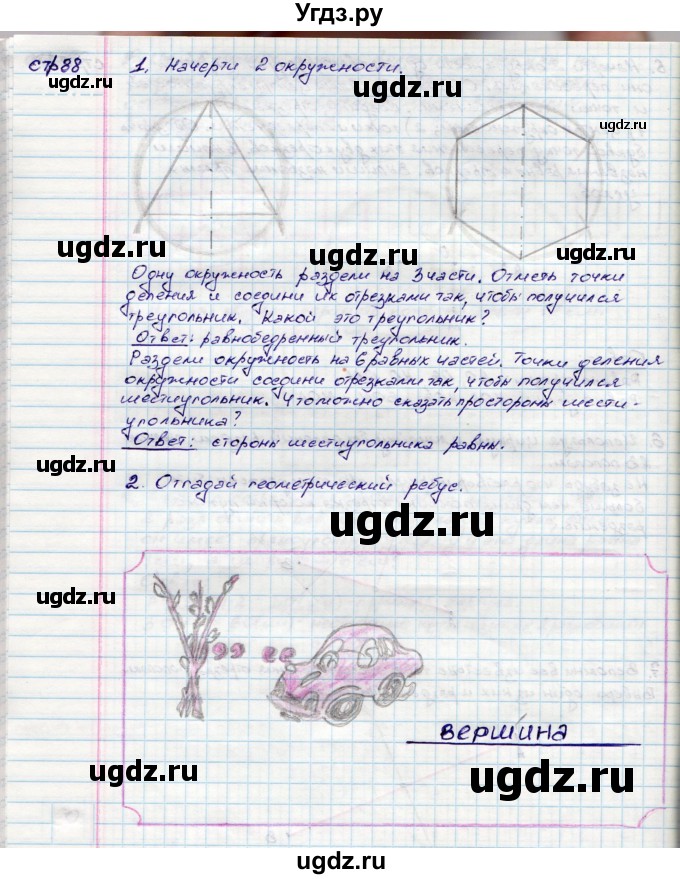 Угдз.ру
стр88 1. Начерти 2 окружности.
ugdz.ru
ugdz.ru
ugdz.ru
ugdz.ru
ugdz.ru
Одну окружность раздели на 3 части. Отметь точки
деления и соедини их отрезками так, чтобы получился
треугольник. Какой это треугольник?
Ответ: равнобедренный треугольник.
Раздели окружность на 6 равных частей. Точки деления
окружности соедини отрезками так, чтобы получился
шестиугольник. Что можно сказать про стороны шести-
угольника?
Ответ: стороны шестиугольника равны.
ugdz.ru
2. Отгадай геометрический ребус.
ugdz.ru
ugdz.ru
вершина
ugdz.ru
ugdz.ru
ugdz.ru